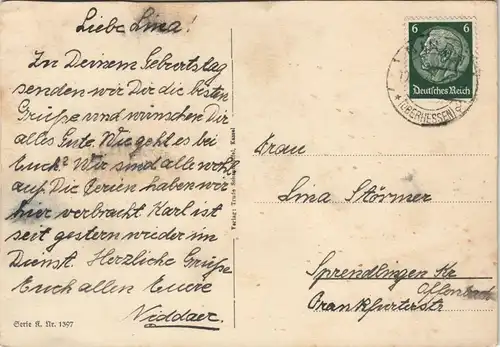 Liebe Lina!
Zu Deinem Geburtstag
senden wir Dir die besten
Grüße und wünschen Dir
alles Gute. Wie geht es bei
Euch? Wir sind alle wohl
auf. Die Ferien haben wir
hier verbracht. Karl ist
seit gestern wieder im
Dienst. Herzliche Grüße
Euch allen Eure
Niddaer.
Serie K. Nr. 1397
Verlag: Kassel
6 6
Deutsches Reich
(OBERHESSEN)
Frau
Lina Störmer
Sprendlingen Kr
Offenbach
Frankfurterstr